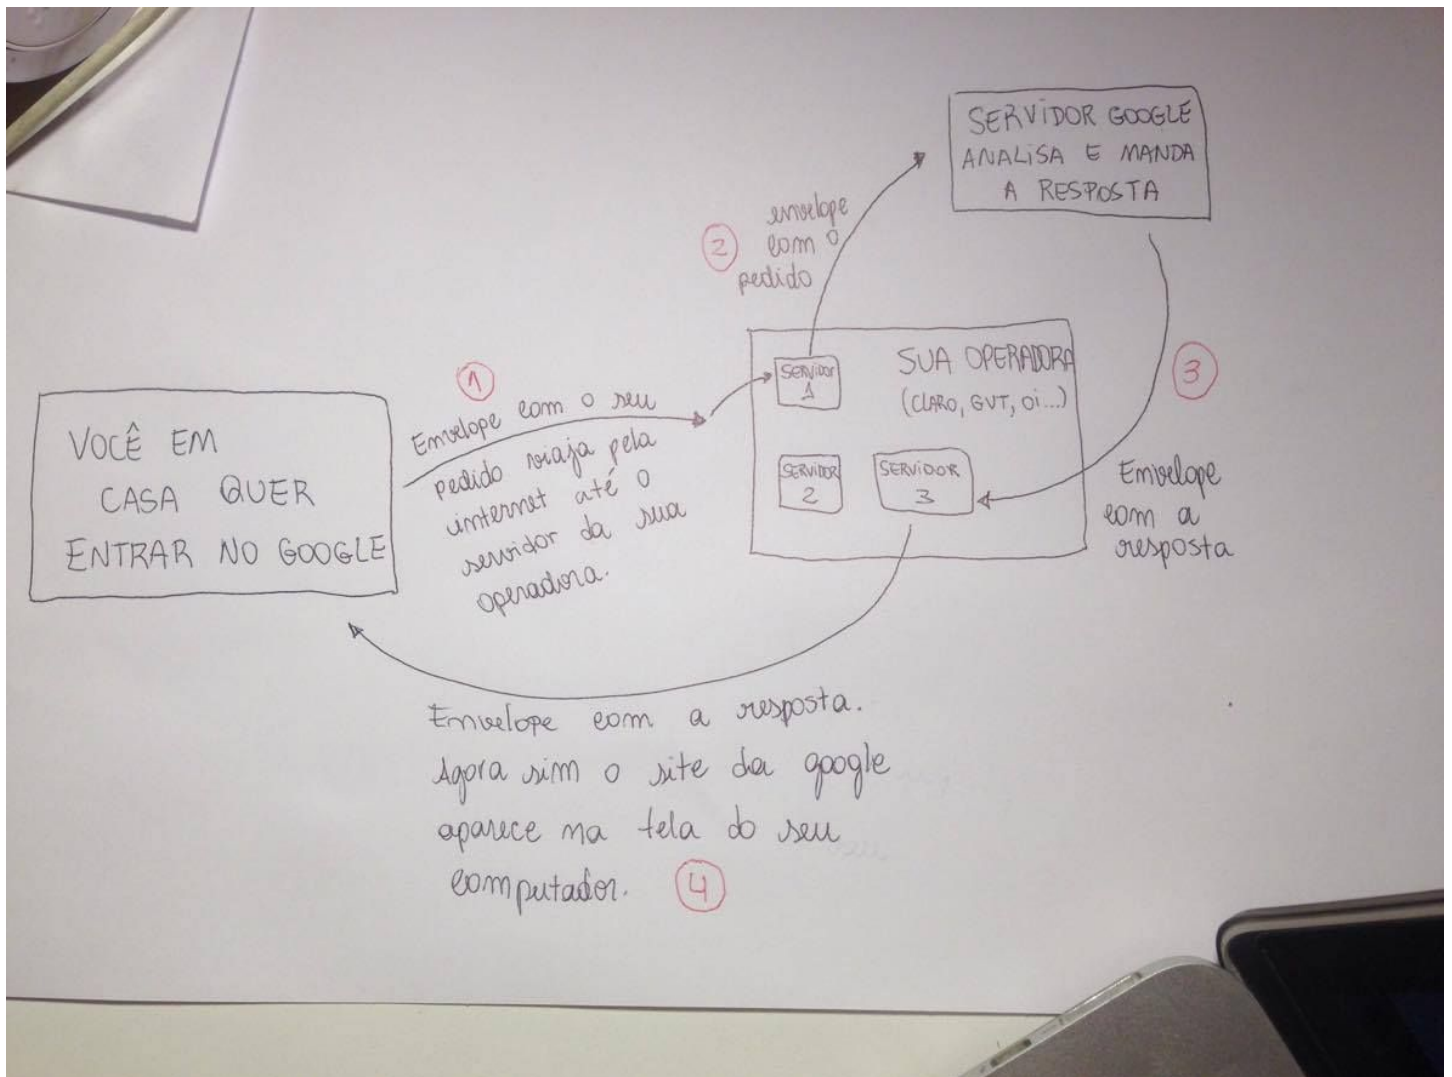 VOCÊ EM
CASA QUER
ENTRAR NO GOOGLE
1
Envelope com o seu
pedido viaja pela
internet até o
servidor da sua
operadora.
2
envelope
com o
pedido
SERVIDOR GOOGLE
ANALISA E MANDA
A RESPOSTA
SERVIDOR
1
SUA OPERADORA
(CLARO, GVT, Oi...)
SERVIDOR
2
SERVIDOR
3
3
Envelope
com a
resposta
Envelope com a resposta.
Agora sim o site da google
aparece na tela do seu
computador. 4